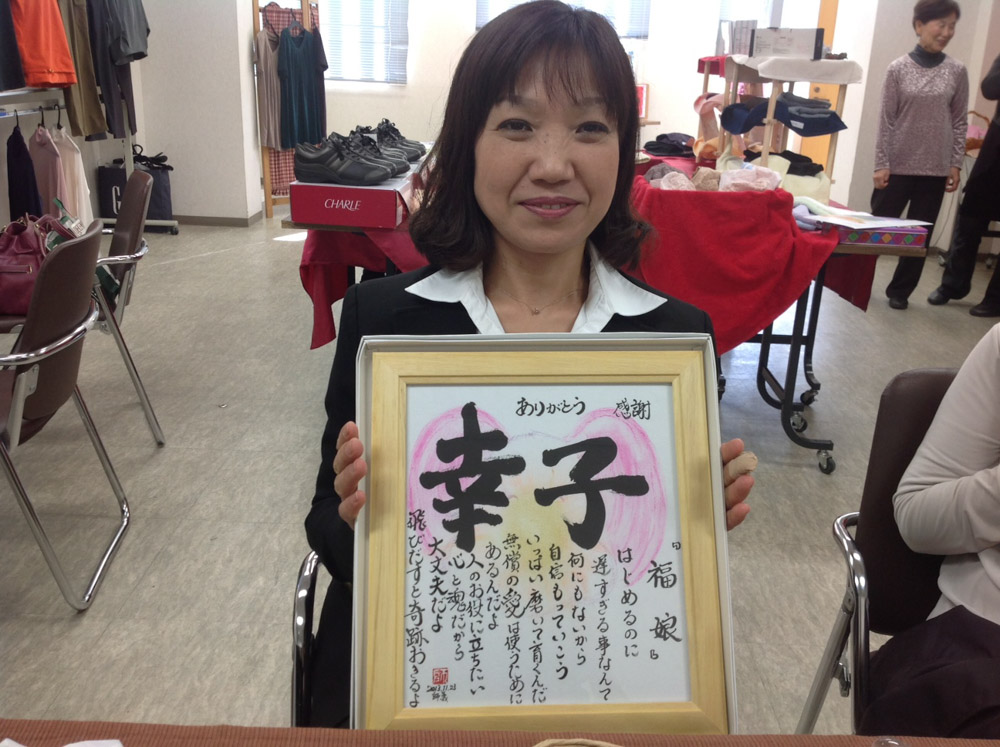 CHARLE
ありがとう 感謝
幸子
『福娘』
はじめるのに
遅すぎる事なんて
何にもないから
自信もっていこう
いっぱい磨いて育くんだ
無償の愛は使うために
あるんだよ
人のお役に立ちたい
心と魂だから
大丈夫だよ
飛びだすと奇跡おきるよ